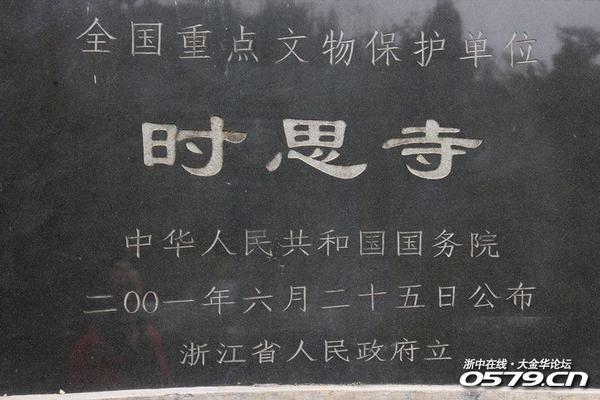 全国重点文物保护单位
时思寺
中华人民共和国国务院
二00一年六月二十五日公布
浙江省人民政府立
浙中在线·大金华论坛
0579.cn